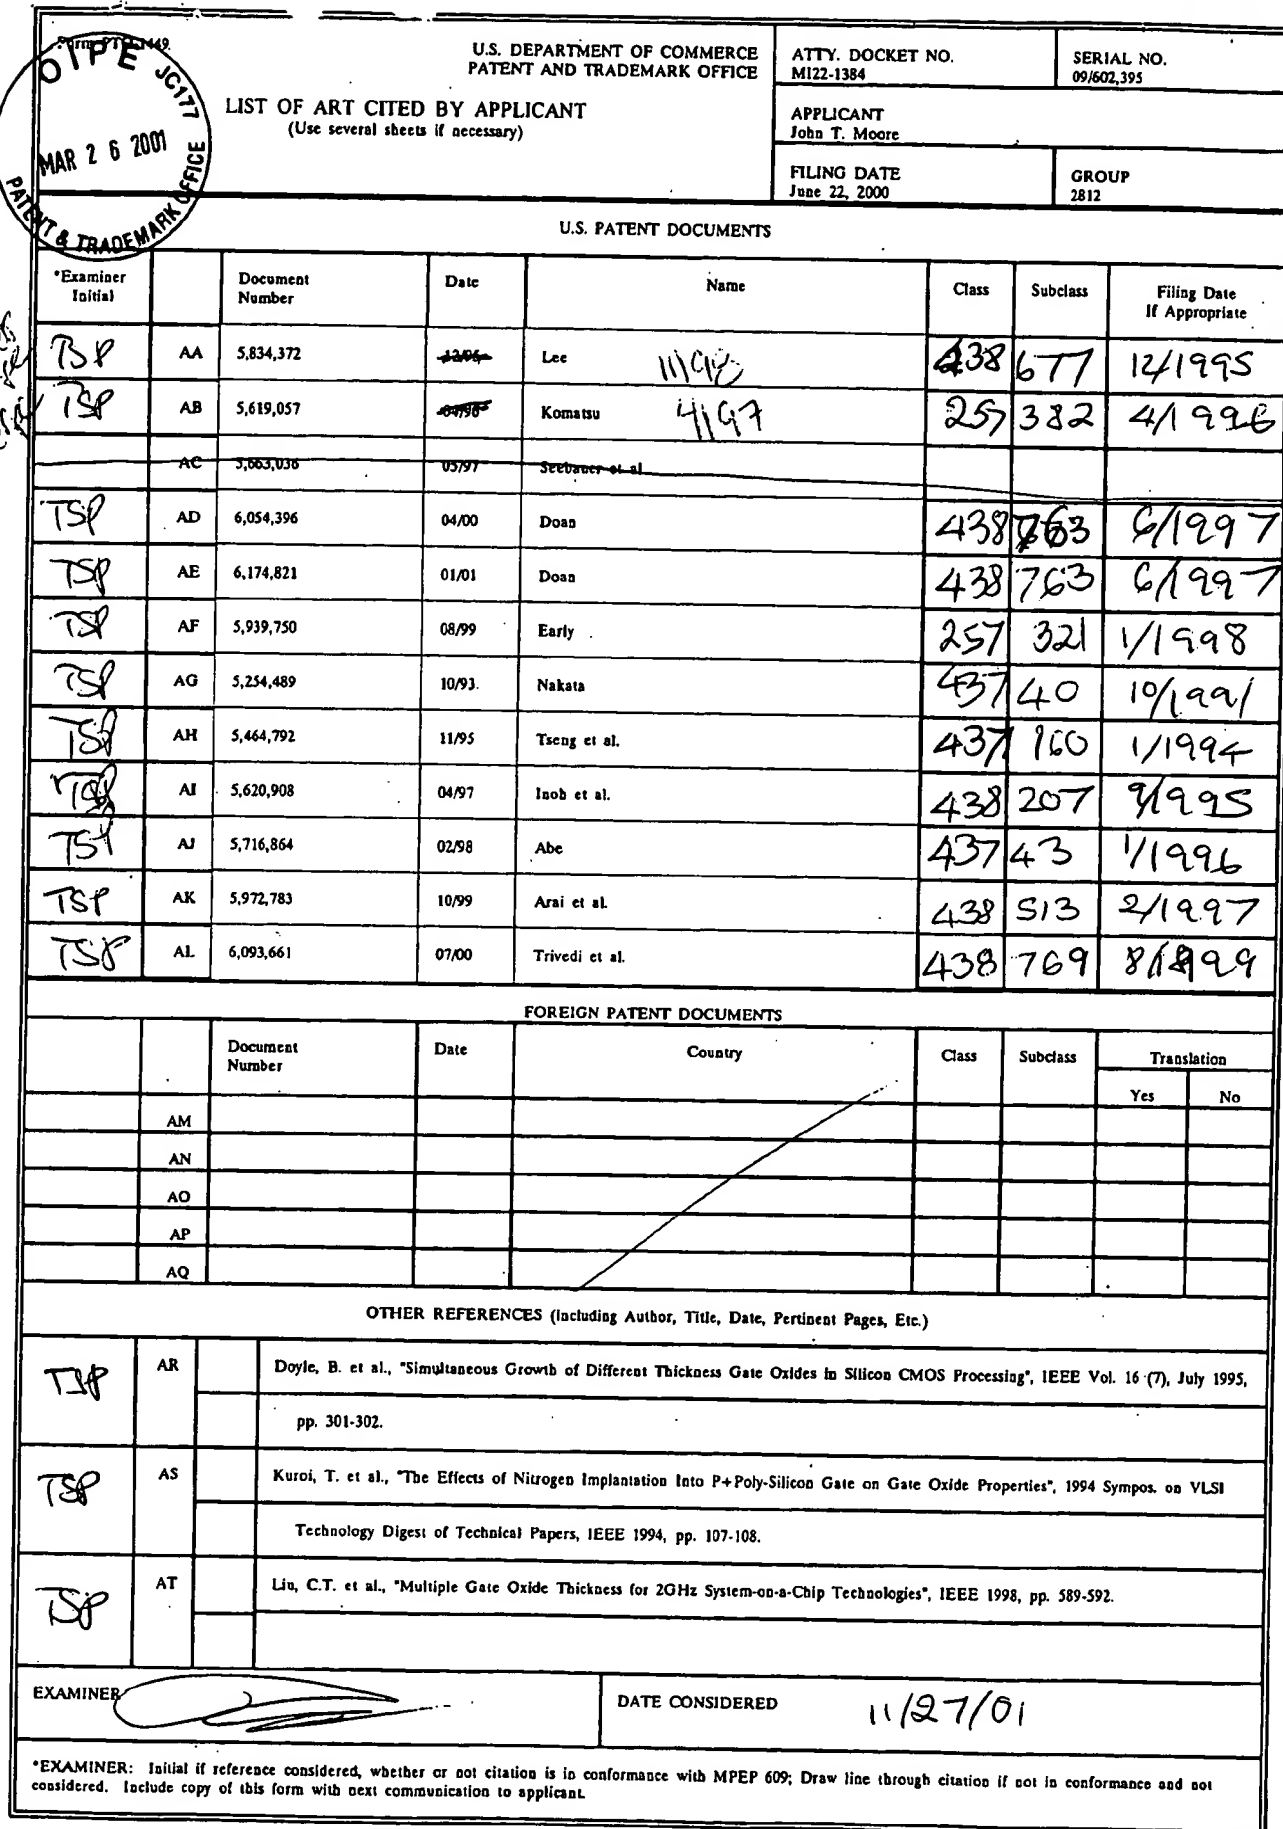 Form PTO-1449
OIPE JC177
MAR 26 2001
PATENT & TRADEMARK OFFICE
U.S. DEPARTMENT OF COMMERCE
PATENT AND TRADEMARK OFFICE
LIST OF ART CITED BY APPLICANT
(Use several sheets if necessary)
ATTY. DOCKET NO.
MI22-1384
SERIAL NO.
09/602,395
APPLICANT
John T. Moore
FILING DATE
June 22, 2000
GROUP
2812
U.S. PATENT DOCUMENTS
*Examiner Initial Document Number Date Name Class Subclass Filing Date If Appropriate
TSP AA 5,834,372 12/96 Lee 11/98 438 677 12/1995
TSP AB 5,619,057 04/96 Komatsu 4/97 257 382 4/1996
AC 5,663,036 05/97 Seebauer et al
TSP AD 6,054,396 04/00 Doan 438 763 6/1997
TSP AE 6,174,821 01/01 Doan 438 763 6/1997
TSP AF 5,939,750 08/99 Early 257 321 1/1998
TSP AG 5,254,489 10/93 Nakata 437 40 10/1991
TSP AH 5,464,792 11/95 Tseng et al. 437 160 1/1994
TSP AI 5,620,908 04/97 Inoh et al. 438 207 9/1995
TSP AJ 5,716,864 02/98 Abe 437 43 1/1996
TSP AK 5,972,783 10/99 Arai et al. 438 513 2/1997
TSP AL 6,093,661 07/00 Trivedi et al. 438 769 8/1999
FOREIGN PATENT DOCUMENTS
Document Number Date Country Class Subclass Translation
Yes No
AM
AN
AO
AP
AQ
OTHER REFERENCES (Including Author, Title, Date, Pertinent Pages, Etc.)
TSP AR Doyle, B. et al., "Simultaneous Growth of Different Thickness Gate Oxides in Silicon CMOS Processing", IEEE Vol. 16 (7), July 1995,
pp. 301-302.
TSP AS Kuroi, T. et al., "The Effects of Nitrogen Implantation Into P+Poly-Silicon Gate on Gate Oxide Properties", 1994 Sympos. on VLSI
Technology Digest of Technical Papers, IEEE 1994, pp. 107-108.
TSP AT Liu, C.T. et al., "Multiple Gate Oxide Thickness for 2GHz System-on-a-Chip Technologies", IEEE 1998, pp. 589-592.
EXAMINER
DATE CONSIDERED 11/27/01
*EXAMINER: Initial if reference considered, whether or not citation is in conformance with MPEP 609; Draw line through citation if not in conformance and not
considered. Include copy of this form with next communication to applicant.